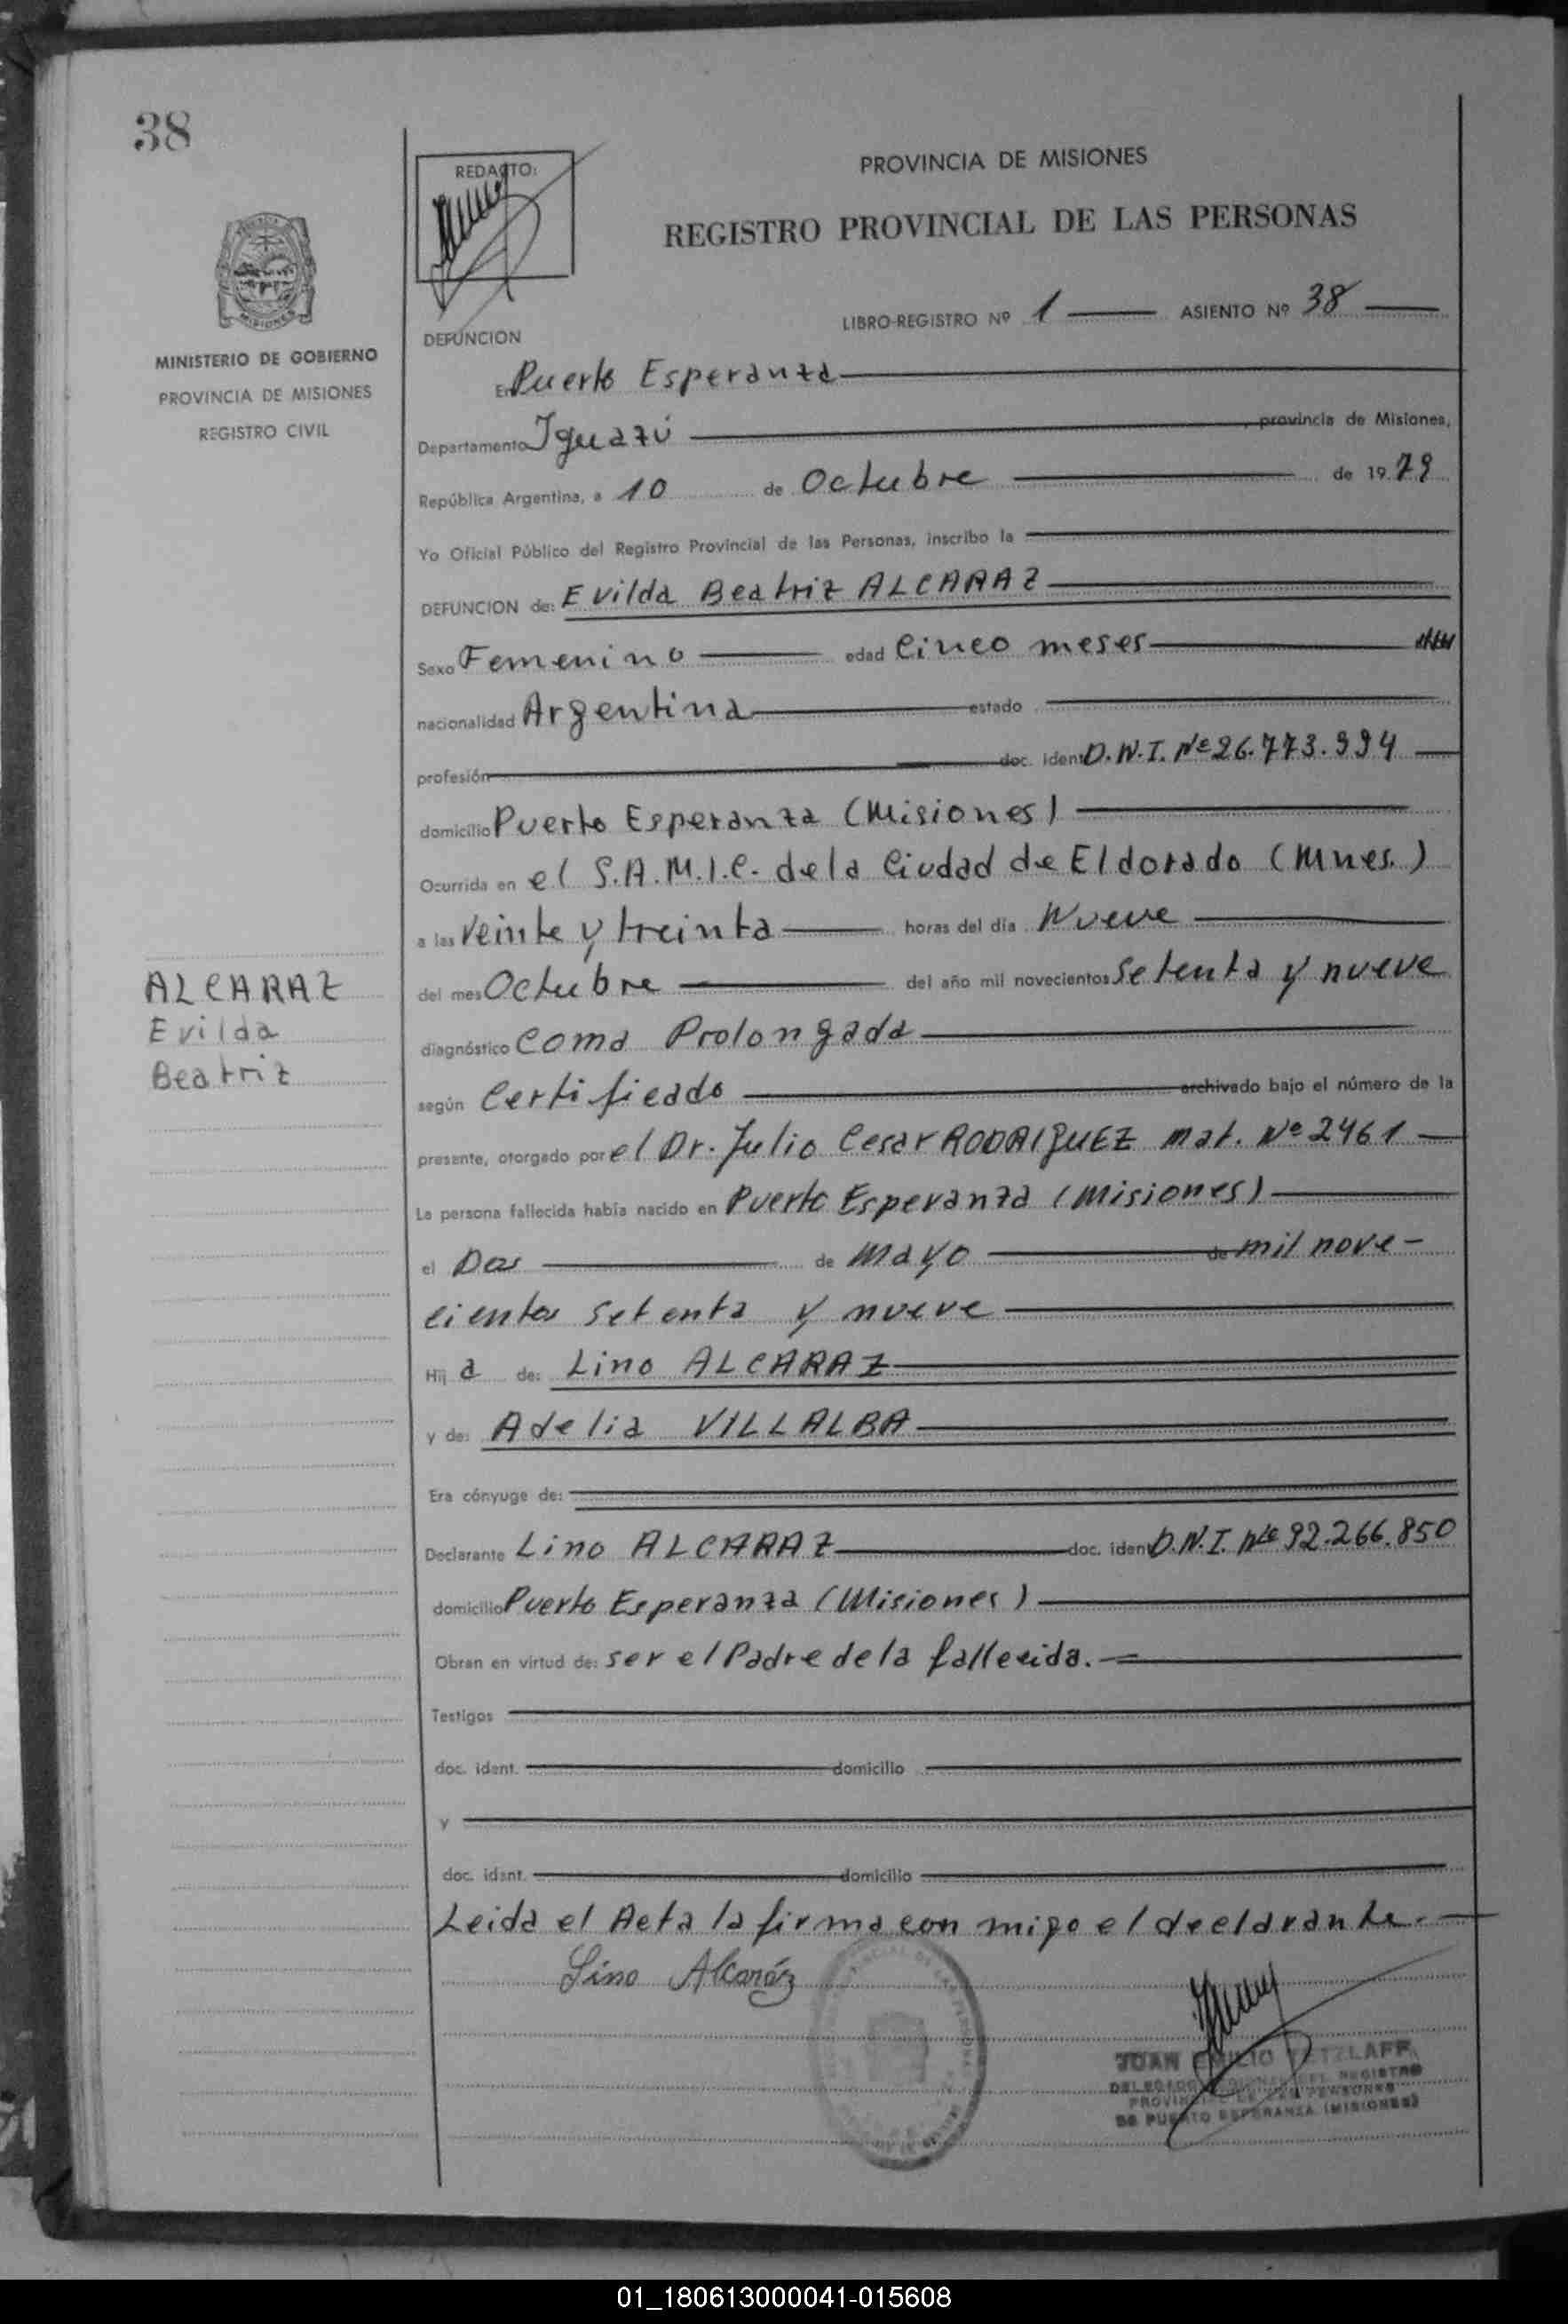 38
MINISTERIO DE GOBIERNO
PROVINCIA DE MISIONES
REGISTRO CIVIL
ALCARAZ
Evilda
Beatriz
REDACTO:
PROVINCIA DE MISIONES
REGISTRO PROVINCIAL DE LAS PERSONAS
LIBRO-REGISTRO Nº 1 ASIENTO Nº 38
DEFUNCION
En Puerto Esperanza
Departamento Iguazú, provincia de Misiones,
República Argentina, a 10 de Octubre de 1979
Yo Oficial Público del Registro Provincial de las Personas, inscribo la
DEFUNCION de: Evilda Beatriz ALCARAZ
Sexo Femenino edad Cinco meses
nacionalidad Argentina estado
profesión doc. ident D.N.I. Nº 26.773.994
domicilio Puerto Esperanza (Misiones)
Ocurrida en el S.A.M.I.C. de la Ciudad de Eldorado (Mnes.)
a las Veinte y treinta horas del día Nueve
del mes Octubre del año mil novecientos Setenta y nueve
diagnóstico Coma Prolongada
según Certificado archivado bajo el número de la
presente, otorgado por el Dr. Julio Cesar RODRIGUEZ mat. Nº 2461
La persona fallecida había nacido en Puerto Esperanza (Misiones)
el Dos de Mayo de mil nove-
cientos setenta y nueve
Hij a de: Lino ALCARAZ
y de: Adelia VILLALBA
Era cónyuge de:
Declarante Lino ALCARAZ doc. ident D.N.I. Nº 92.266.850
domicilio Puerto Esperanza (Misiones)
Obran en virtud de: ser el Padre de la fallecida.
Testigos
doc. ident. domicilio
y
doc. ident. domicilio
Leida el Acta la firma con migo el declarante.
Lino Alcaráz
JUAN EMILIO
PROVINCIAL DE LAS PERSONAS
DE PUERTO ESPERANZA (MISIONES)
01_180613000041-015608